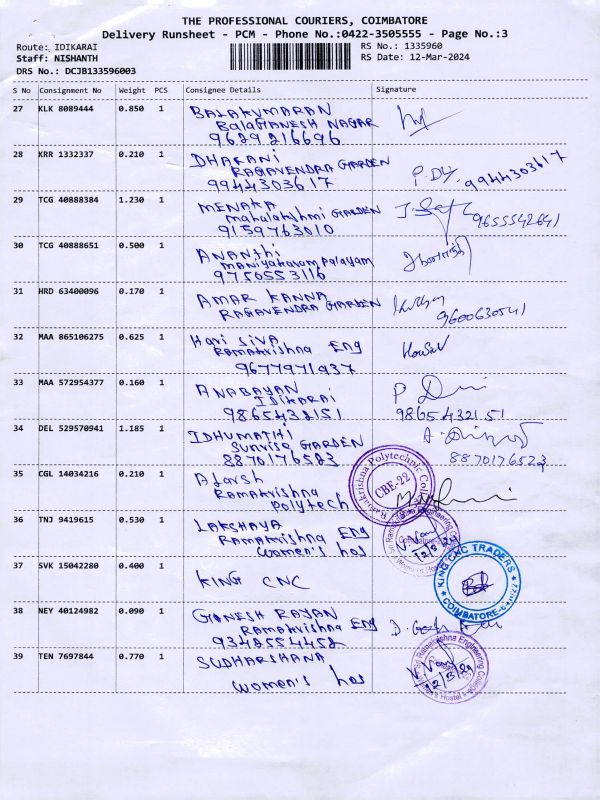 THE PROFESSIONAL COURIERS, COIMBATORE
Delivery Runsheet - PCM - Phone No.:0422-3505555 - Page No.:3
Route: IDIKARAI RS No.: 1335960
Staff: NISHANTH RS Date: 12-Mar-2024
DRS No.: DCJB133596003
S No Consignment No Weight PCS Consignee Details Signature
27 KLK 8089444 0.850 1 BALAKUMARAN
BalaGANESH NAGAR
9629216696
28 KRR 1332337 0.210 1 DHARANI
RAGAVENDRA GARDEN
9944303617 9944303617
29 TCG 40888384 1.230 1 MENAKA
Mahalakshmi GARDEN
9159763010 9655542641
30 TCG 40888651 0.500 1 ANANthi
maniyakaram palayam
9750553116
31 HRD 63400096 0.170 1 AMAR KANNA
RAGAVENDRA GARDEN
9600630541
32 MAA 865106275 0.625 1 Hari SIVA
Ramakrishna Eng
9677971937
33 MAA 572954377 0.160 1 ANABAYAN
IDIKARAI
9865432151 9865432151
34 DEL 529570941 1.185 1 IDHUMATHI
Sunrise GARDEN
8870176523 8870176523
35 CGL 14034216 0.210 1
Ramakrishna
Polytech
Ramakrishna Polytechnic
CBE-22
36 TNJ 9419615 0.530 1 LAKSHAYA
Ramakrishna Eng
Women's hos
Sri Ramakrishna Engineering College
12/3/24
37 SVK 15042280 0.400 1 KING CNC
KING CNC TRADERS
COIMBATORE
38 NEY 40124982 0.090 1 GANESH RAYAN
Ramakrishna Eng
9348554458
39 TEN 7697844 0.770 1 SUDHARSHANA
Women's hos
Sri Ramakrishna Engineering College
Women's Hostel
12/3/24